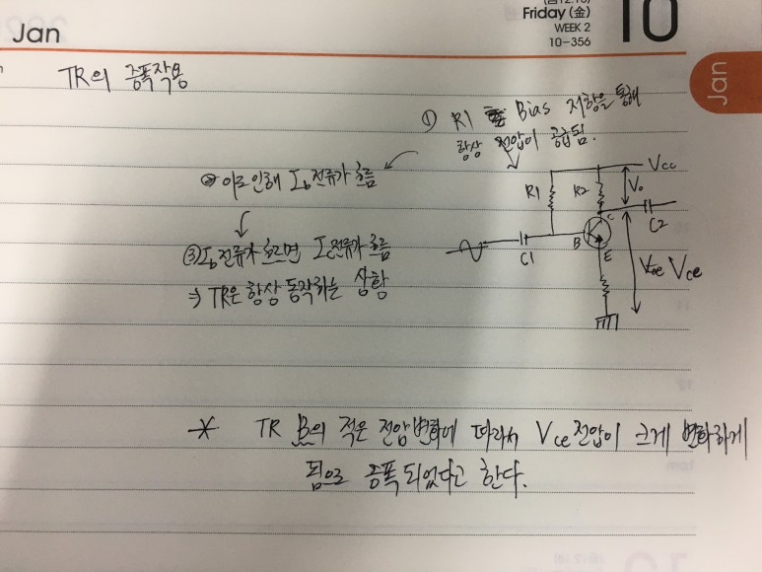 Jan
Friday (金)
WEEK 2
10-356
10
Jan
TR의 증폭작용
① R1 Bias 저항을 통해
항상 전압이 공급됨.
② 이로인해 Ib전류가 흐름
③ Ib전류가 흐르면 Ic전류가 흐름
⇒ TR은 항상 동작하는 상황
Vcc
R1
R2
Vo
C
C2
B
C1
E
Vce
* TR B의 적은 전압변화에 따라서 Vce전압이 크게 변화하게
됨으로 증폭되었다고 한다.